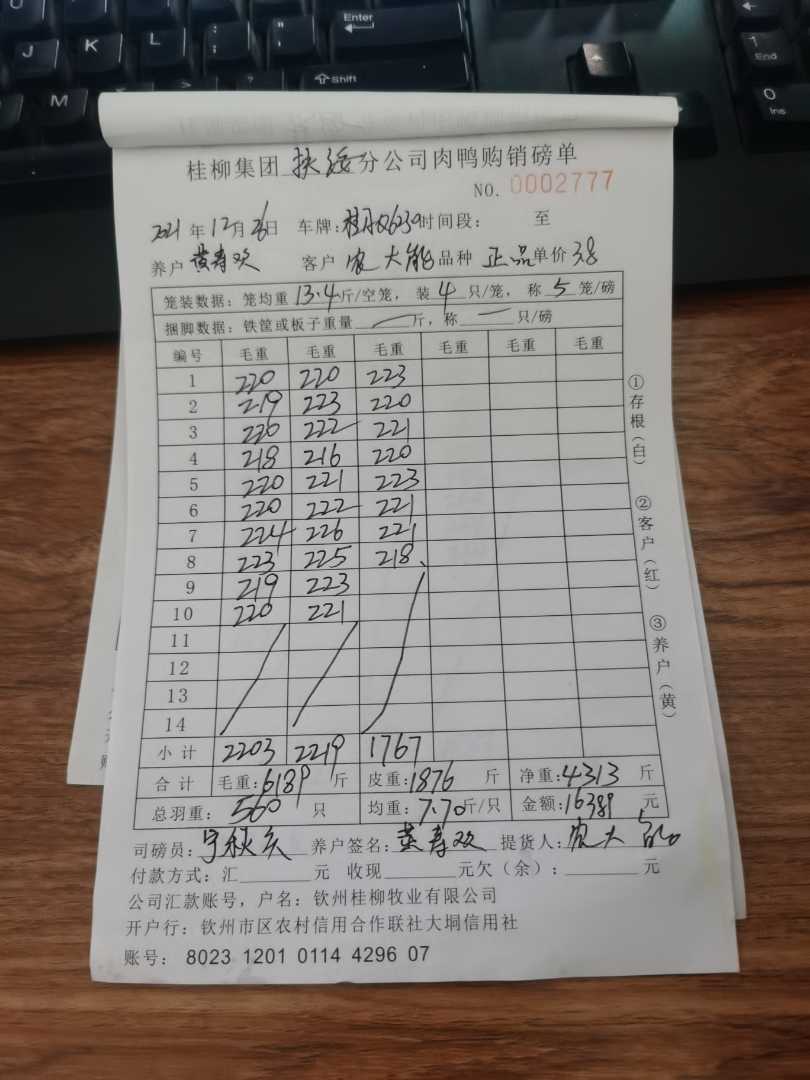 J K L : ; " ' Enter
M Shift
1 End
0 Ins
桂柳集团扶绥分公司肉鸭购销磅单
NO. 0002777
2021年12月26日 车牌: 时间段: 至
养户 黄寿欢 客户 农大能 品种 正品 单价 3.8
笼装数据: 笼均重 13.4 斤/空笼, 装 4 只/笼, 称 5 笼/磅
捆脚数据: 铁筐或板子重量 — 斤, 称 — 只/磅
编号 毛重 毛重 毛重 毛重 毛重 毛重
1 220 220 223
2 219 223 220
3 220 222 221
4 218 216 220
5 220 221 223
6 220 222 221
7 224 226 221
8 223 225 218
9 219 223
10 220 221
11
12
13
14
小计 2203 2219 1767
合计 毛重:6189斤 皮重:1876斤 净重:4313斤
总羽重: 560 只 均重: 7.70斤/只 金额:16389元
司磅员: 宁秋庆 养户签名: 黄寿欢 提货人: 农大能
付款方式: 汇______元 收现______元欠(余):______元
公司汇款账号, 户名: 钦州桂柳牧业有限公司
开户行: 钦州市区农村信用合作联社大垌信用社
账号: 8023 1201 0114 4296 07
①存根(白)
②客户(红)
③养户(黄)